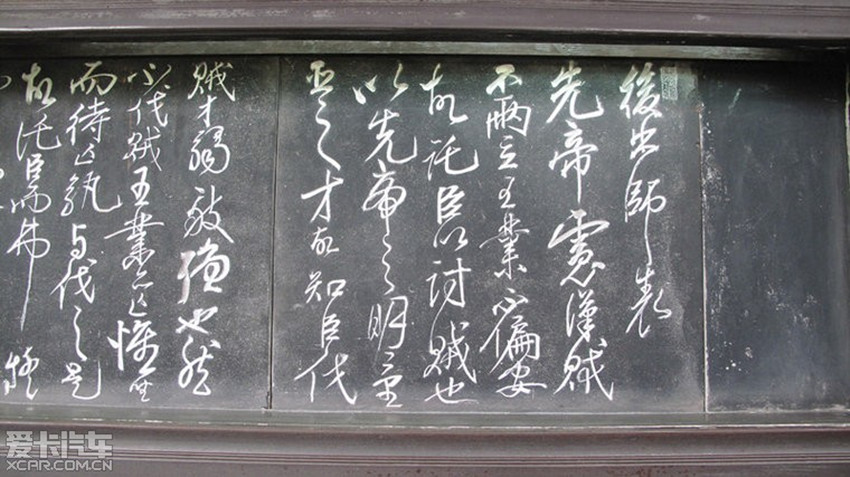 後出師表
先帝慮漢賊
不兩立王業不偏安
故託臣以討賊也
以先帝之明量
臣之才故知臣伐
賊才弱敵強也然
不伐賊王業亦亡惟坐
而待亡孰與伐之是
故託臣而弗疑
爱卡汽车
XCAR.COM.CN